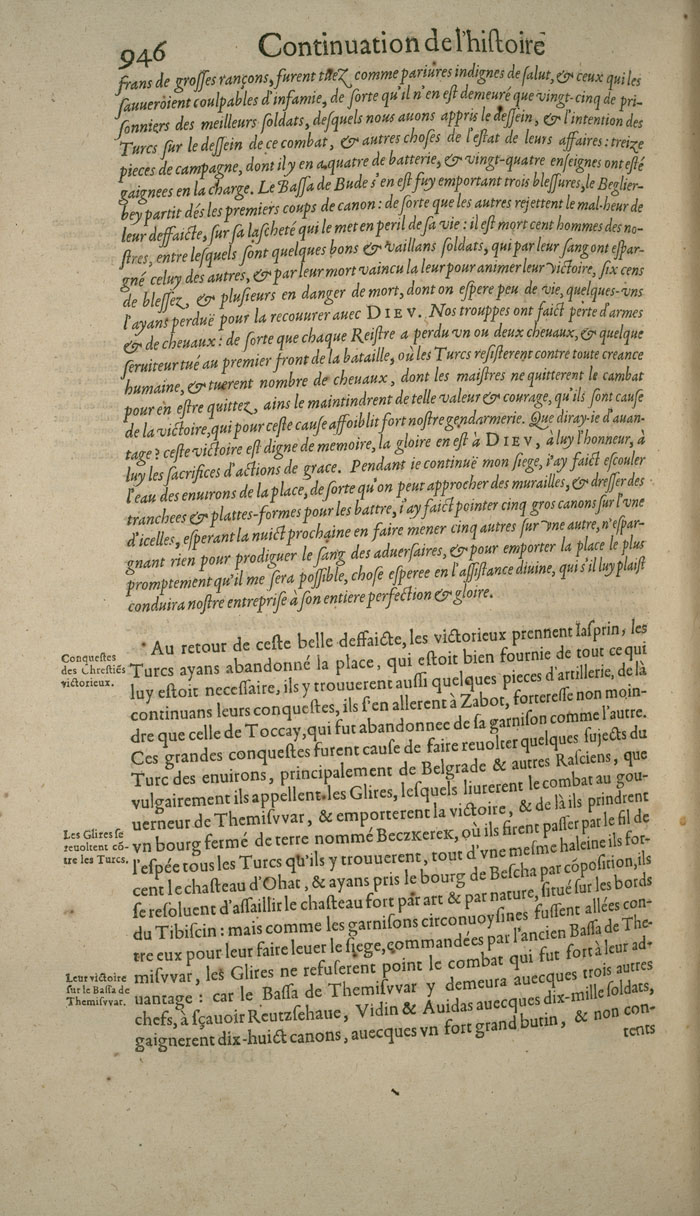 946 Continuation de l'histoire
frans de grosses rançons, furent tuez comme pariures indignes de salut, & ceux qui les
sauueroient coulpables d'infamie, de sorte qu'il n'en est demeuré que vingt-cinq de pri-
sonniers des meilleurs soldats, desquels nous auons appris le dessein, & l'intention des
Turcs sur le dessein de ce combat, & autres choses de l'estat de leurs affaires: treize
pieces de campagne, dont il y en a quatre de batterie, & vingt-quatre enseignes ont esté
gaignees en la charge. Le Bassa de Bude s'en est fuy emportant trois blessures, le Beglier-
bey partit dés les premiers coups de canon: de sorte que les autres rejettent le mal-heur de
leur deffaicte, sur sa lascheté qui le met en peril de sa vie: il est mort cent hommes des no-
stres, entre lesquels sont quelques bons & vaillans soldats, qui par leur sang ont espar-
gné celuy des autres, & par leur mort vaincu la leur pour animer leur victoire, six cens
de blessez, & plusieurs en danger de mort, dont on espere peu de vie, quelques-vns
l'ayans perduë pour la recouurer auec DIEV. Nos trouppes ont faict perte d'armes
& de cheuaux: de sorte que chaque Reistre a perdu vn ou deux cheuaux, & quelque
seruiteur tué au premier front de la bataille, où les Turcs resisterent contre toute creance
humaine, & tuerent nombre de cheuaux, dont les maistres ne quitterent le combat
pour en estre quittez, ains le maintindrent de telle valeur & courage, qu'ils sont cause
de la victoire, qui pour ceste cause affoiblit fort nostre gendarmerie. Que diray-ie d'auan-
tage? ceste victoire est digne de memoire, la gloire en est à DIEV, à luy l'honneur, à
luy les sacrifices d'actions de grace. Pendant ie continuë mon siege, i'ay faict escouler
l'eau des enuirons de la place, de sorte qu'on peut approcher des murailles, & dresser des
tranchees & plattes-formes pour les battre, i'ay faict pointer cinq gros canons sur l'vne
d'icelles, esperant la nuict prochaine en faire mener cinq autres sur vne autre, n'espar-
gnant rien pour prodiguer le sang des aduersaires, & pour emporter la place le plus
promptement qu'il me sera possible, chose esperee en l'assistance diuine, qui s'il luy plaist
conduira nostre entreprise à son entiere perfection & gloire.
Conquestes
des Chrestiés
victorieux.
Au retour de ceste belle deffaicte, les victorieux prennent Iasprin, les
Turcs ayans abandonné la place, qui estoit bien fournie de tout ce qui
luy estoit necessaire, ils y trouuerent aussi quelques pieces d'artillerie, de là
continuans leurs conquestes, ils s'en allerent à Zabot, forteresse non moin-
dre que celle de Toccay, qui fut abandonnee de sa garnison comme l'autre.
Ces grandes conquestes furent cause de faire reuolter quelques sujects du
Turc des enuirons, principalement de Belgrade & autres Rasciens, que
vulgairement ils appellent les Glires, lesquels liurerent le combat au gou-
uerneur de Themisvvar, & emporterent la victoire, & de là ils prindrent
Les Glires se
reuoltent cõ-
tre les Turcs.
vn bourg fermé de terre nommé Beczkerek, où ils firent passer par le fil de
l'espée tous les Turcs qu'ils y trouuerent, tout d'vne mesme haleine ils for-
cent le chasteau d'Ohat, & ayans pris le bourg de Bescha par cõposition, ils
se resoluent d'assaillir le chasteau fort par art & par nature, situé sur les bords
du Tibiscin: mais comme les garnisons circonuoysines fussent allées con-
tre eux pour leur faire leuer le siege, commandées par l'ancien Bassa de The-
Leur victoire
sur le Bassa de
Themisvvar.
misvvar, les Glires ne refuserent point le combat qui fut fort à leur ad-
uantage: car le Bassa de Themisvvar y demeura auecques trois autres
chefs, à sçauoir Reutzsehaue, Vidin & Auidas auecques dix-mille soldats,
gaignerent dix-huict canons, auecques vn fort grand butin, & non con-
tents